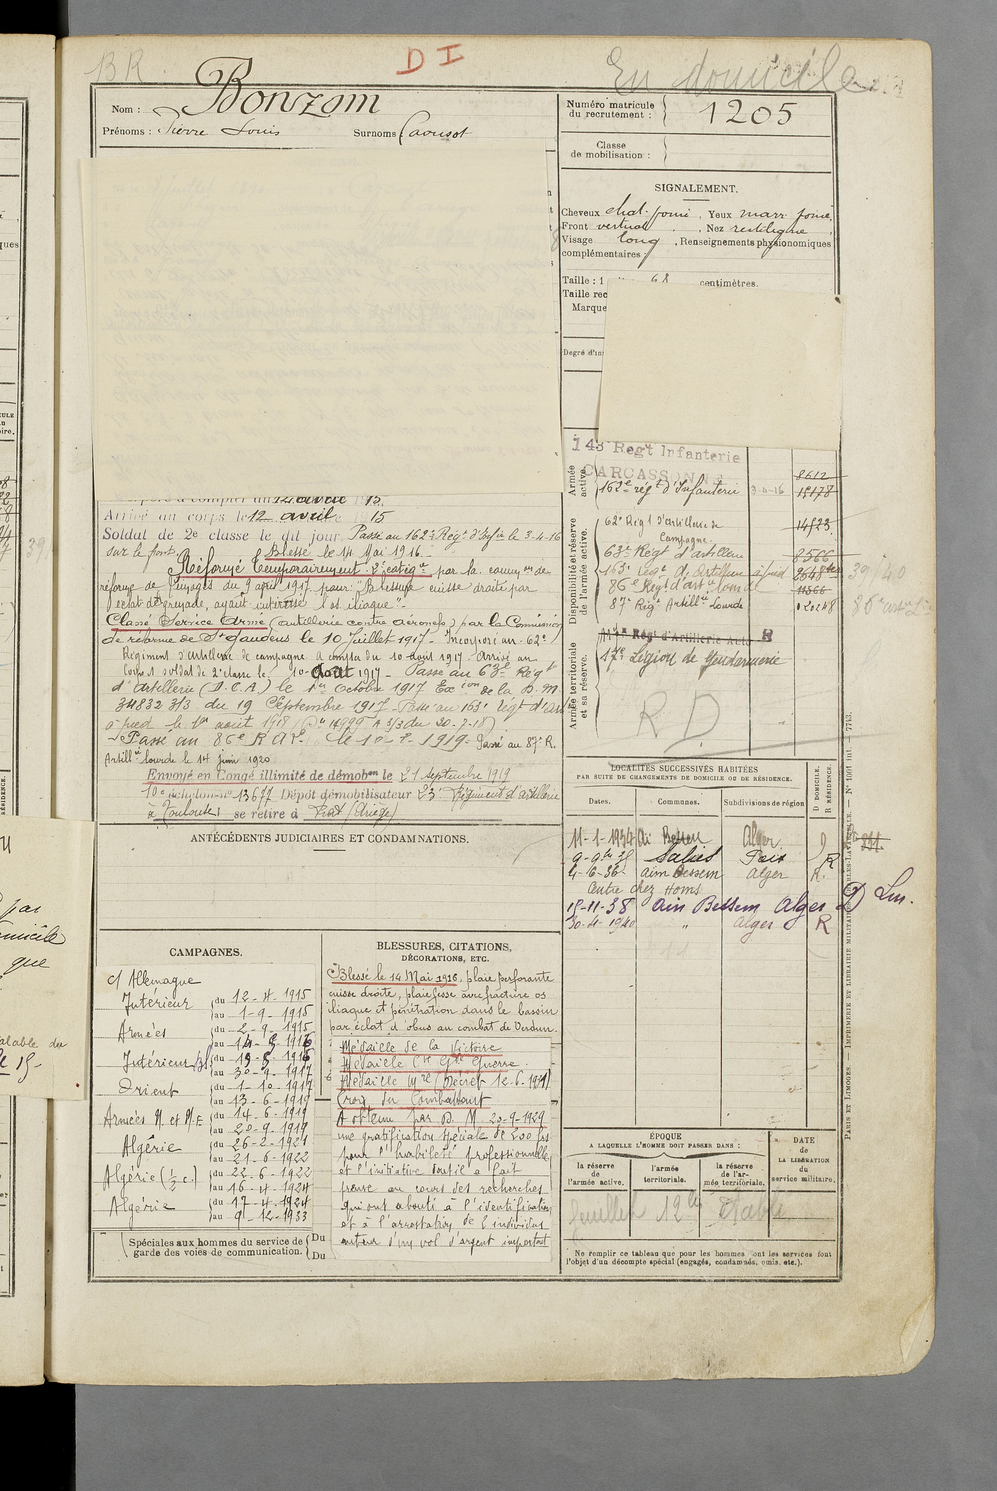 BR
D I
En domicile
Nom : Bonzom
Prénoms : Pierre Louis Surnoms Caousot
Numéro matricule du recrutement : 1205
Classe de mobilisation :
SIGNALEMENT.
Cheveux chat. foncé, Yeux marr. foncé,
Front vertical, Nez rectiligne
Visage long, Renseignements physionomiques
complémentaires :
Taille : 1 68 centimètres.
Taille rec
Marque
Degré d'in
143 Regt Infanterie
CARCASSONNE
8612
163e rég t d'Infanterie 3-4-16 15178
62e Rég t d'Artillerie de Campagne 14523
63e Régt d'artillerie 8566
163e Régt d'Artillerie à pied 2548 bis
86e Régt d'art ie lourde 11366
87e Régt Artill ie Lourde
Régt d'Artillerie Auto R
17e Légion de Gendarmerie
RD
Armée active.
Disponibilité et réserve de l'armée active.
Armée territoriale et sa réserve.
12 avril 1915
Arrivé au corps le 12 avril 1915
Soldat de 2e classe le dit jour. Passé au 163e Rég t d'Inf ie le 3-4-16
sur le front. Blessé le 14 Mai 1916 -
Réformé Temporairement 2e catég ie par la comm on de
réforme de Limoges du 9 avril 1917 pour: "Blessure cuisse droite par
éclat de grenade, ayant intéressé l'os iliaque".
Classé Service Armé (artillerie contre aéronefs) par la Commission
de réforme de St Gaudens le 10 Juillet 1917 - Incorporé au 62e
Régiment d'artillerie de campagne à compter du 10 août 1917. Arrivé au
corps & soldat de 2e classe le 10 Août 1917 - Passé au 63e Rég t
d'Artillerie (D.C.A.) le 1er Octobre 1917 Ex ion de la D.M.
34832 3/3 du 19 Septembre 1917 - Passé au 163e régt d'Art
à pied le 1er août 1918 (D n 14999 A 3/3 du 30-7-18)
Passé au 86e R A L. le 1919 - Passé au 87e R.
Artill ie lourde le 14 juin 1920
Envoyé en Congé illimité de démob on le 21 septembre 1919
10e échelon no 13677 Dépôt démobilisateur 23e Régiment d'artillerie
à Toulouse se retire à (Ariège)
ANTÉCÉDENTS JUDICIAIRES ET CONDAMNATIONS.
LOCALITÉS SUCCESSIVES HABITÉES
PAR SUITE DE CHANGEMENTS DE DOMICILE OU DE RÉSIDENCE.
Dates. Communes. Subdivisions de région D. DOMICILE. R. RÉSIDENCE.
11-1-1934 Aïn Bessem Alger D
9-9bre 35 Salies Foix R
4-6-36 aïn Bessem Alger R.
Centre chez Homs
15-11-38 Ain Bessem Alger D Lm.
30-4-1940 " Alger R
CAMPAGNES.
c/ Allemagne
Intérieur du 12-4-1915
au 1-9-1915
Armées du 2-9-1915
au 14-5-1916
Intérieur Bl. du 15-5-1916
au 30-9-1917
Orient du 1-10-1917
au 13-6-1919
Armées A. et M-E du 14-6-1919
au 20-9-1919
Algérie du 26-2-1921
au 21-6-1922
Algérie (1/2 c.) du 22-6-1922
au 16-4-1924
Algérie du 17-4-1924
au 9-12-1933
Spéciales aux hommes du service de garde des voies de communication. Du
Du
BLESSURES, CITATIONS,
DÉCORATIONS, ETC.
Blessé le 14 Mai 1916, plaie perforante
cuisse droite, plaie fesse avec fracture os
iliaque et pénétration dans le bassin
par éclat d'obus au combat de Verdun.
Médaille de la Victoire
Médaille C ve G de Guerre
Médaille M re (Décret 12-6-1931)
Croix du Combattant
A obtenu par D.M. 20-9-1929
une gratification spéciale de 200 frs
pour l'habileté professionnelle
et l'initiative dont il a fait
preuve au cours des recherches
qui ont abouti à l'identification
et à l'arrestation de l'individu
auteur d'un vol d'argent important
ÉPOQUE
A LAQUELLE L'HOMME DOIT PASSER DANS :
la réserve de l'armée active. l'armée territoriale. la réserve de l'armée territoriale.
DATE de LA LIBÉRATION du service militaire.
Ne remplir ce tableau que pour les hommes dont les services font
l'objet d'un décompte spécial (engagés, condamnés, omis, etc.).
PARIS ET LIMOGES. — IMPRIMERIE ET LIBRAIRIE MILITAIRES CHARLES-LAVAUZELLE. — N° 1001 int. — 7743.
par
domicile
que
valable du